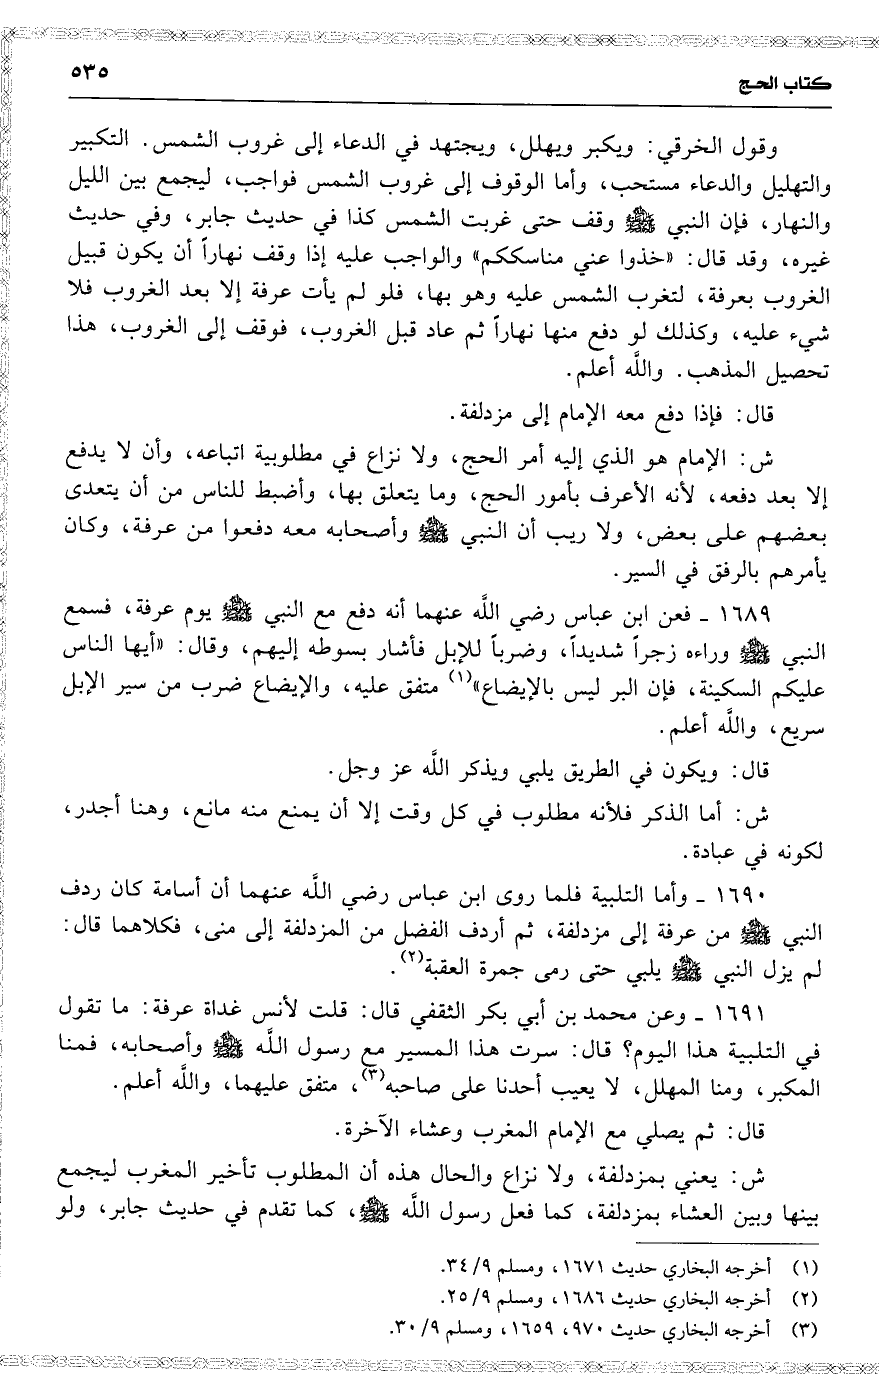 كتاب الحج
٥٣٥
وقول الخرقي: ويكبر ويهلل، ويجتهد في الدعاء إلى غروب الشمس. التكبير
والتهليل والدعاء مستحب، وأما الوقوف إلى غروب الشمس فواجب، ليجمع بين الليل
والنهار، فإن النبي ﷺ وقف حتى غربت الشمس كذا في حديث جابر، وفي حديث
غيره، وقد قال: «خذوا عني مناسككم» والواجب عليه إذا وقف نهاراً أن يكون قبيل
الغروب بعرفة، لتغرب الشمس عليه وهو بها، فلو لم يأت عرفة إلا بعد الغروب فلا
شيء عليه، وكذلك لو دفع منها نهاراً ثم عاد قبل الغروب، فوقف إلى الغروب، هذا
تحصيل المذهب. واللَّه أعلم.
قال: فإذا دفع معه الإمام إلى مزدلفة.
ش: الإمام هو الذي إليه أمر الحج، ولا نزاع في مطلوبية اتباعه، وأن لا يدفع
إلا بعد دفعه، لأنه الأعرف بأمور الحج، وما يتعلق بها، وأضبط للناس من أن يتعدى
بعضهم على بعض، ولا ريب أن النبي ﷺ وأصحابه معه دفعوا من عرفة، وكان
يأمرهم بالرفق في السير.
١٦٨٩ ـ فعن ابن عباس رضي اللَّه عنهما أنه دفع مع النبي ﷺ يوم عرفة، فسمع
النبي ﷺ وراءه زجراً شديداً، وضرباً للإبل فأشار بسوطه إليهم، وقال: «أيها الناس
عليكم السكينة، فإن البر ليس بالإيضاع»(١) متفق عليه، والإيضاع ضرب من سير الإبل
سريع، واللَّه أعلم.
قال: ويكون في الطريق يلبي ويذكر اللَّه عز وجل.
ش: أما الذكر فلأنه مطلوب في كل وقت إلا أن يمنع منه مانع، وهنا أجدر،
لكونه في عبادة.
١٦٩٠ ـ وأما التلبية فلما روى ابن عباس رضي اللَّه عنهما أن أسامة كان ردف
النبي ﷺ من عرفة إلى مزدلفة، ثم أردف الفضل من المزدلفة إلى منى، فكلاهما قال:
لم يزل النبي ﷺ يلبي حتى رمى جمرة العقبة(٢).
١٦٩١ ـ وعن محمد بن أبي بكر الثقفي قال: قلت لأنس غداة عرفة: ما تقول
في التلبية هذا اليوم؟ قال: سرت هذا المسير مع رسول اللَّه ﷺ وأصحابه، فمنا
المكبر، ومنا المهلل، لا يعيب أحدنا على صاحبه(٣)، متفق عليهما، واللَّه أعلم.
قال: ثم يصلي مع الإمام المغرب وعشاء الآخرة.
ش: يعني بمزدلفة، ولا نزاع والحال هذه أن المطلوب تأخير المغرب ليجمع
بينها وبين العشاء بمزدلفة، كما فعل رسول اللَّه ﷺ، كما تقدم في حديث جابر، ولو
(١) أخرجه البخاري حديث ١٦٧١، ومسلم ٩/ ٣٤.
(٢) أخرجه البخاري حديث ١٦٨٦، ومسلم ٩/ ٢٥.
(٣) أخرجه البخاري حديث ٩٧٠، ١٦٥٩، ومسلم ٩/ ٣٠.